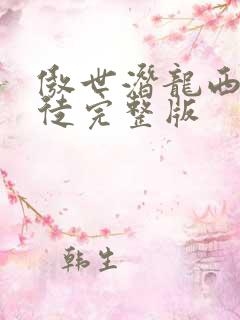 傲世潜龍西
徒完整版
韩生